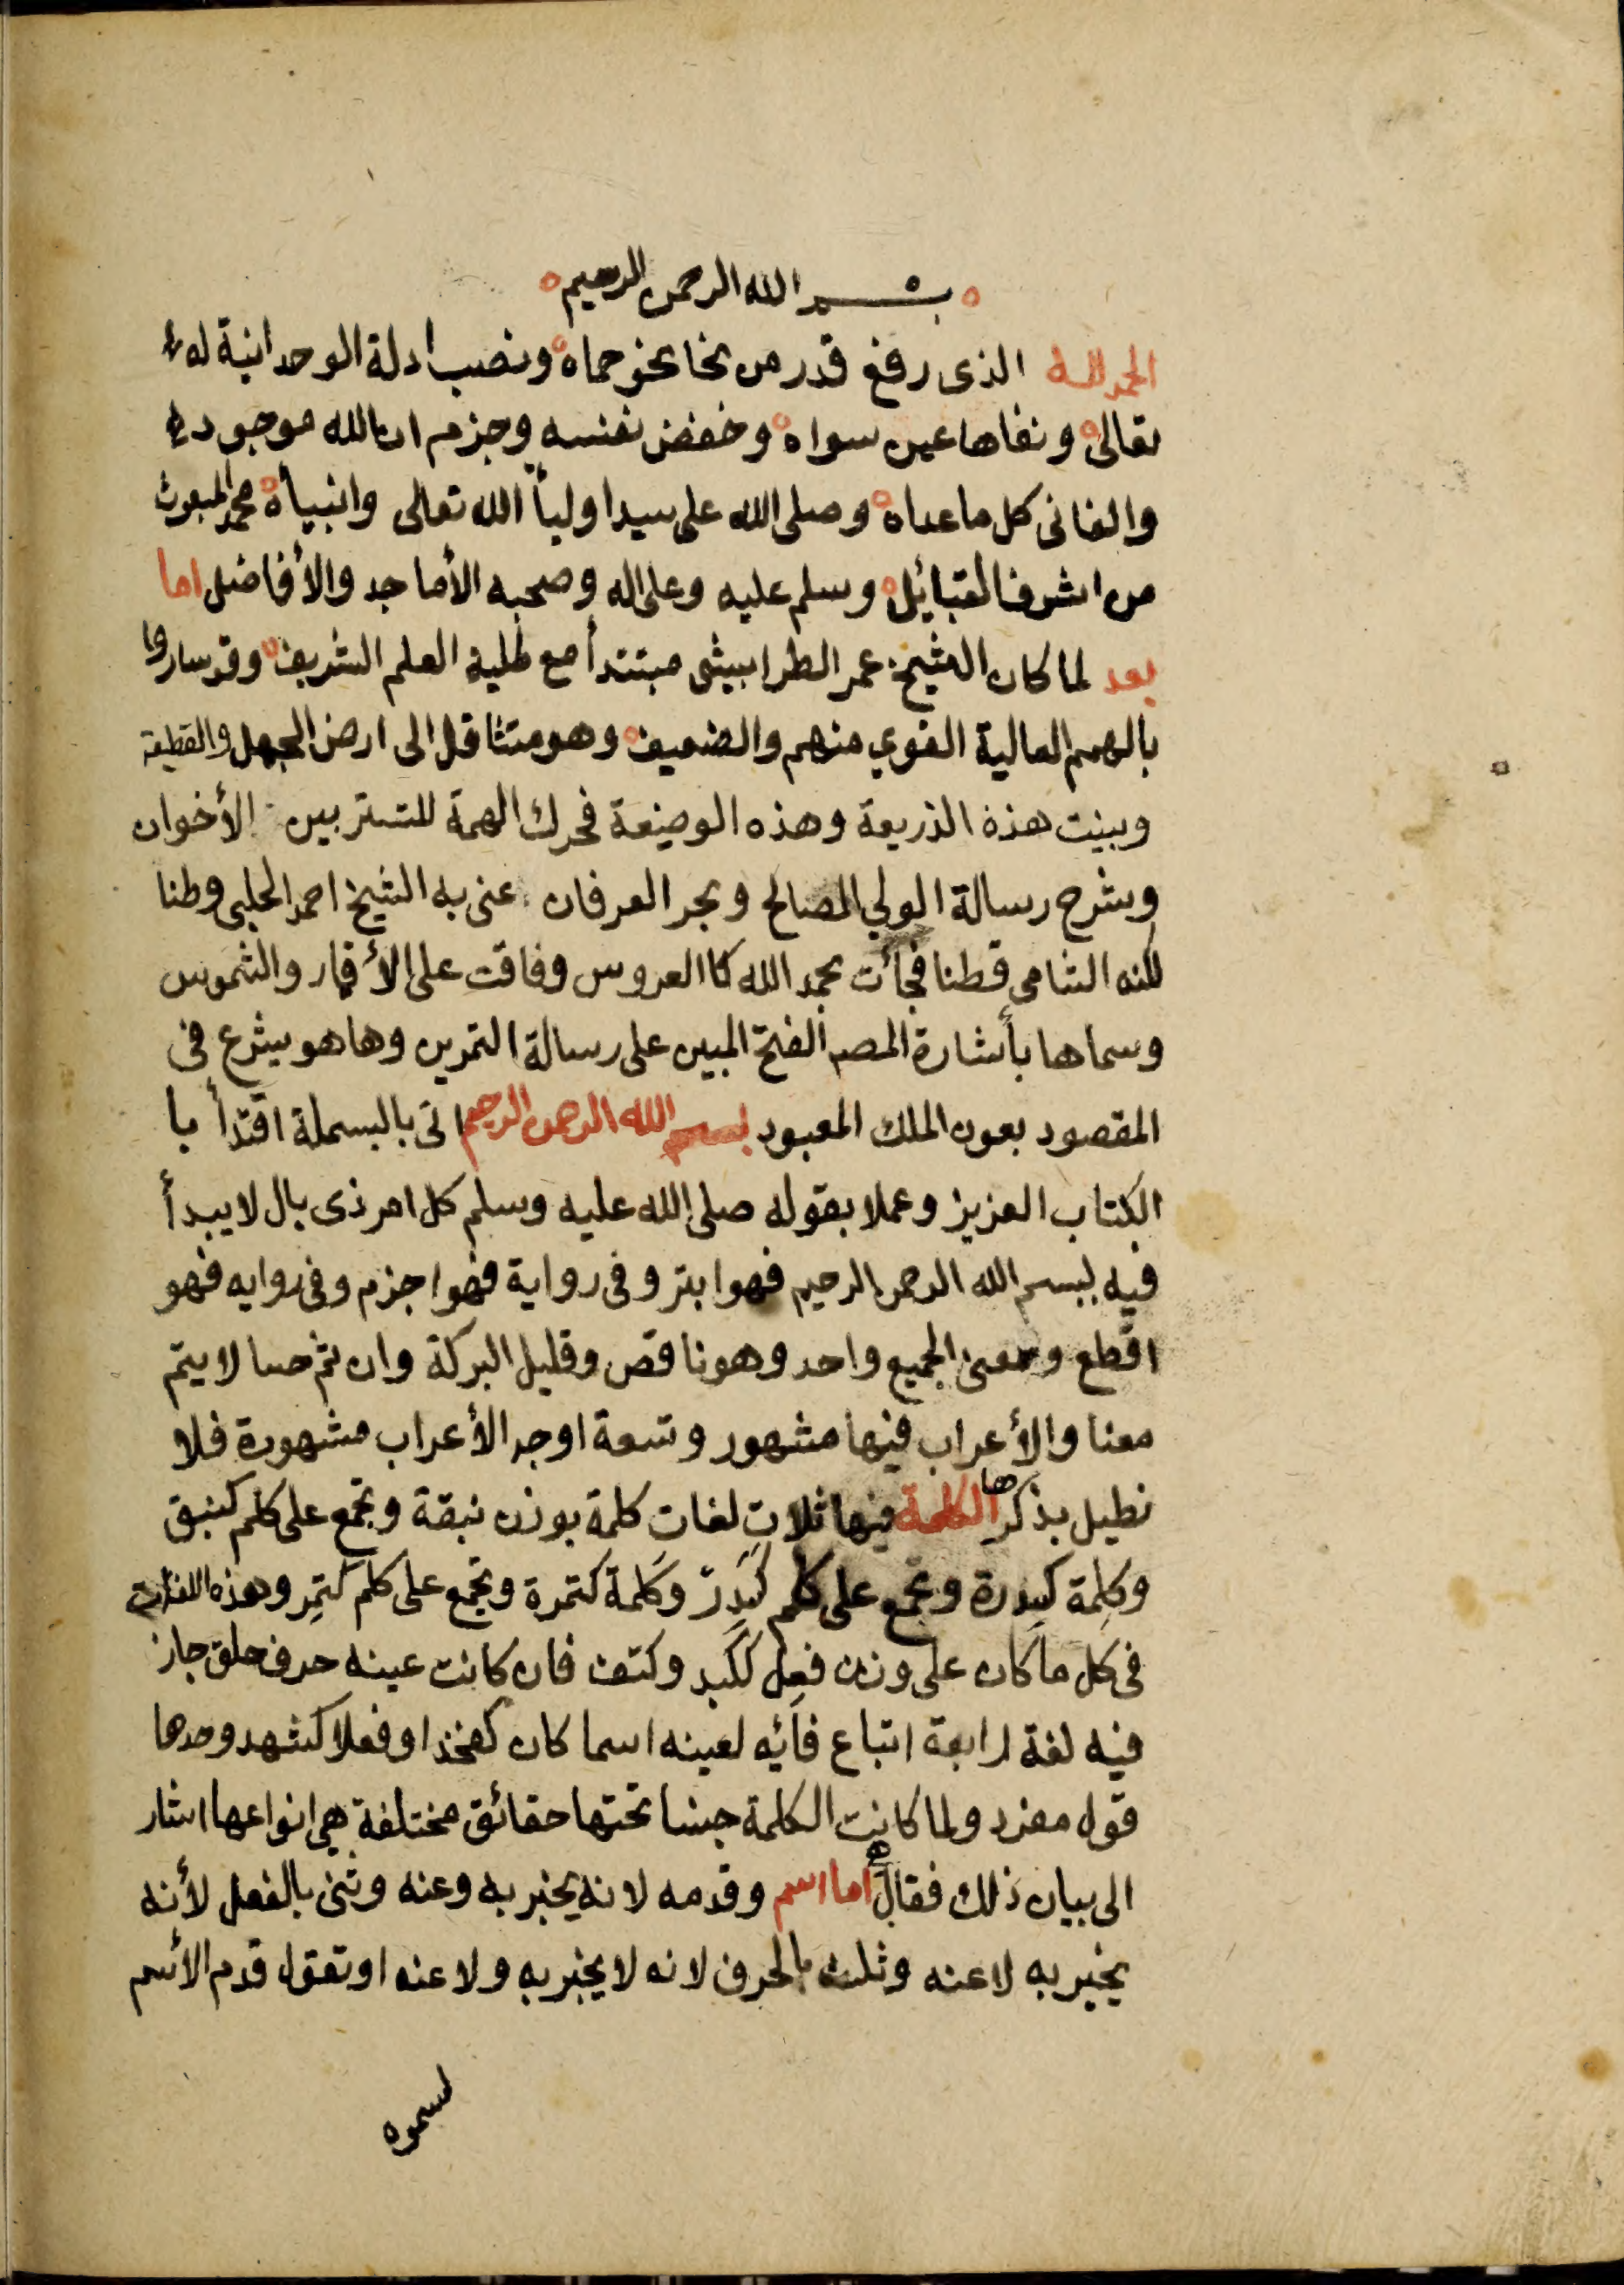 بسم الله الرحمن الرحيم
الحمد لله الذى رفع قدر من نحا نحو حماه ونصب ادلة الوحدانية له
تعالى ونفاها عين سواه وخفض نفسه وجزم ان الله موجود
والفانى كل ما عداه وصلى الله على سيد اوليأ الله تعالى وانبيأه محمد المبعوث
من اشرف القبائيل وسلم عليه وعلى اله وصحبه الأماجد والأفاضل اما
بعد لما كان الشيخ عمر الطرابيشى مبتدأ مع طلبة العلم الشريف وقد ساروا
بالهمم العالية القوي منهم والضعيف وهو متثاقل الى ارض الجهل والقطيعة
وبينت هذة الذريعة وهذه الوضيعة فحرك الهمة للتستر بين الأخوان
وشرح رسالة الولي الصالح وبحر العرفان عنى به الشيخ احمد الحلبى وطنا
لكنه الشامى قطنا فجأت بحمد الله كا العروس وفاقت على الأقمار والشموس
وسماها بأشارة المص الفتح المبين على رسالة التمرين وها هو يشرع فى
المقصود بعون الملك المعبود بسم الله الرحمن الرحيم اتى بالبسملة اقتدأ با
الكتاب العزيز وعملا بقوله صلى الله عليه وسلم كل امر ذى بال لا يبدأ
فيه ببسم الله الرحمن الرحيم فهو ابتر وفى رواية فهو اجزم وفى روايه فهو
اقطع ومعنى الجميع واحد وهو ناقص وقليل البركة وان تم حسا لا يتم
معنا والأعراب فيها مشهور وتسعة اوجه الأعراب مشهورة فلا
نطيل بذكرها الكلمة فيها ثلاث لغات كلمة بوزن نبقة وتجمع على كلم كنبق
وكلمة كسدرة وتجمع على كلم كسدر وكلمة كتمرة وتجمع على كلم كتمر وهذه اللغات
فى كل ما كان على وزن فعل ككبد وكتف فان كانت عينه حرف حلق جاز
فيه لغة رابعة اتباع فائيه لعينه اسما كان كفخذ او فعلا كشهد وحدها
قول مفرد ولما كانت الكلمة جنسا تحتها حقائق مختلفة هى انواعها اشار
الى بيان ذلك فقال اما اسم وقدمه لانه يخبر به وعنه وثنى بالفعل لأنه
يخبر به لا عنه وثلث بالحرف لانه لا يخبر به ولا عنه او تقول قدم الأسم
لسموه